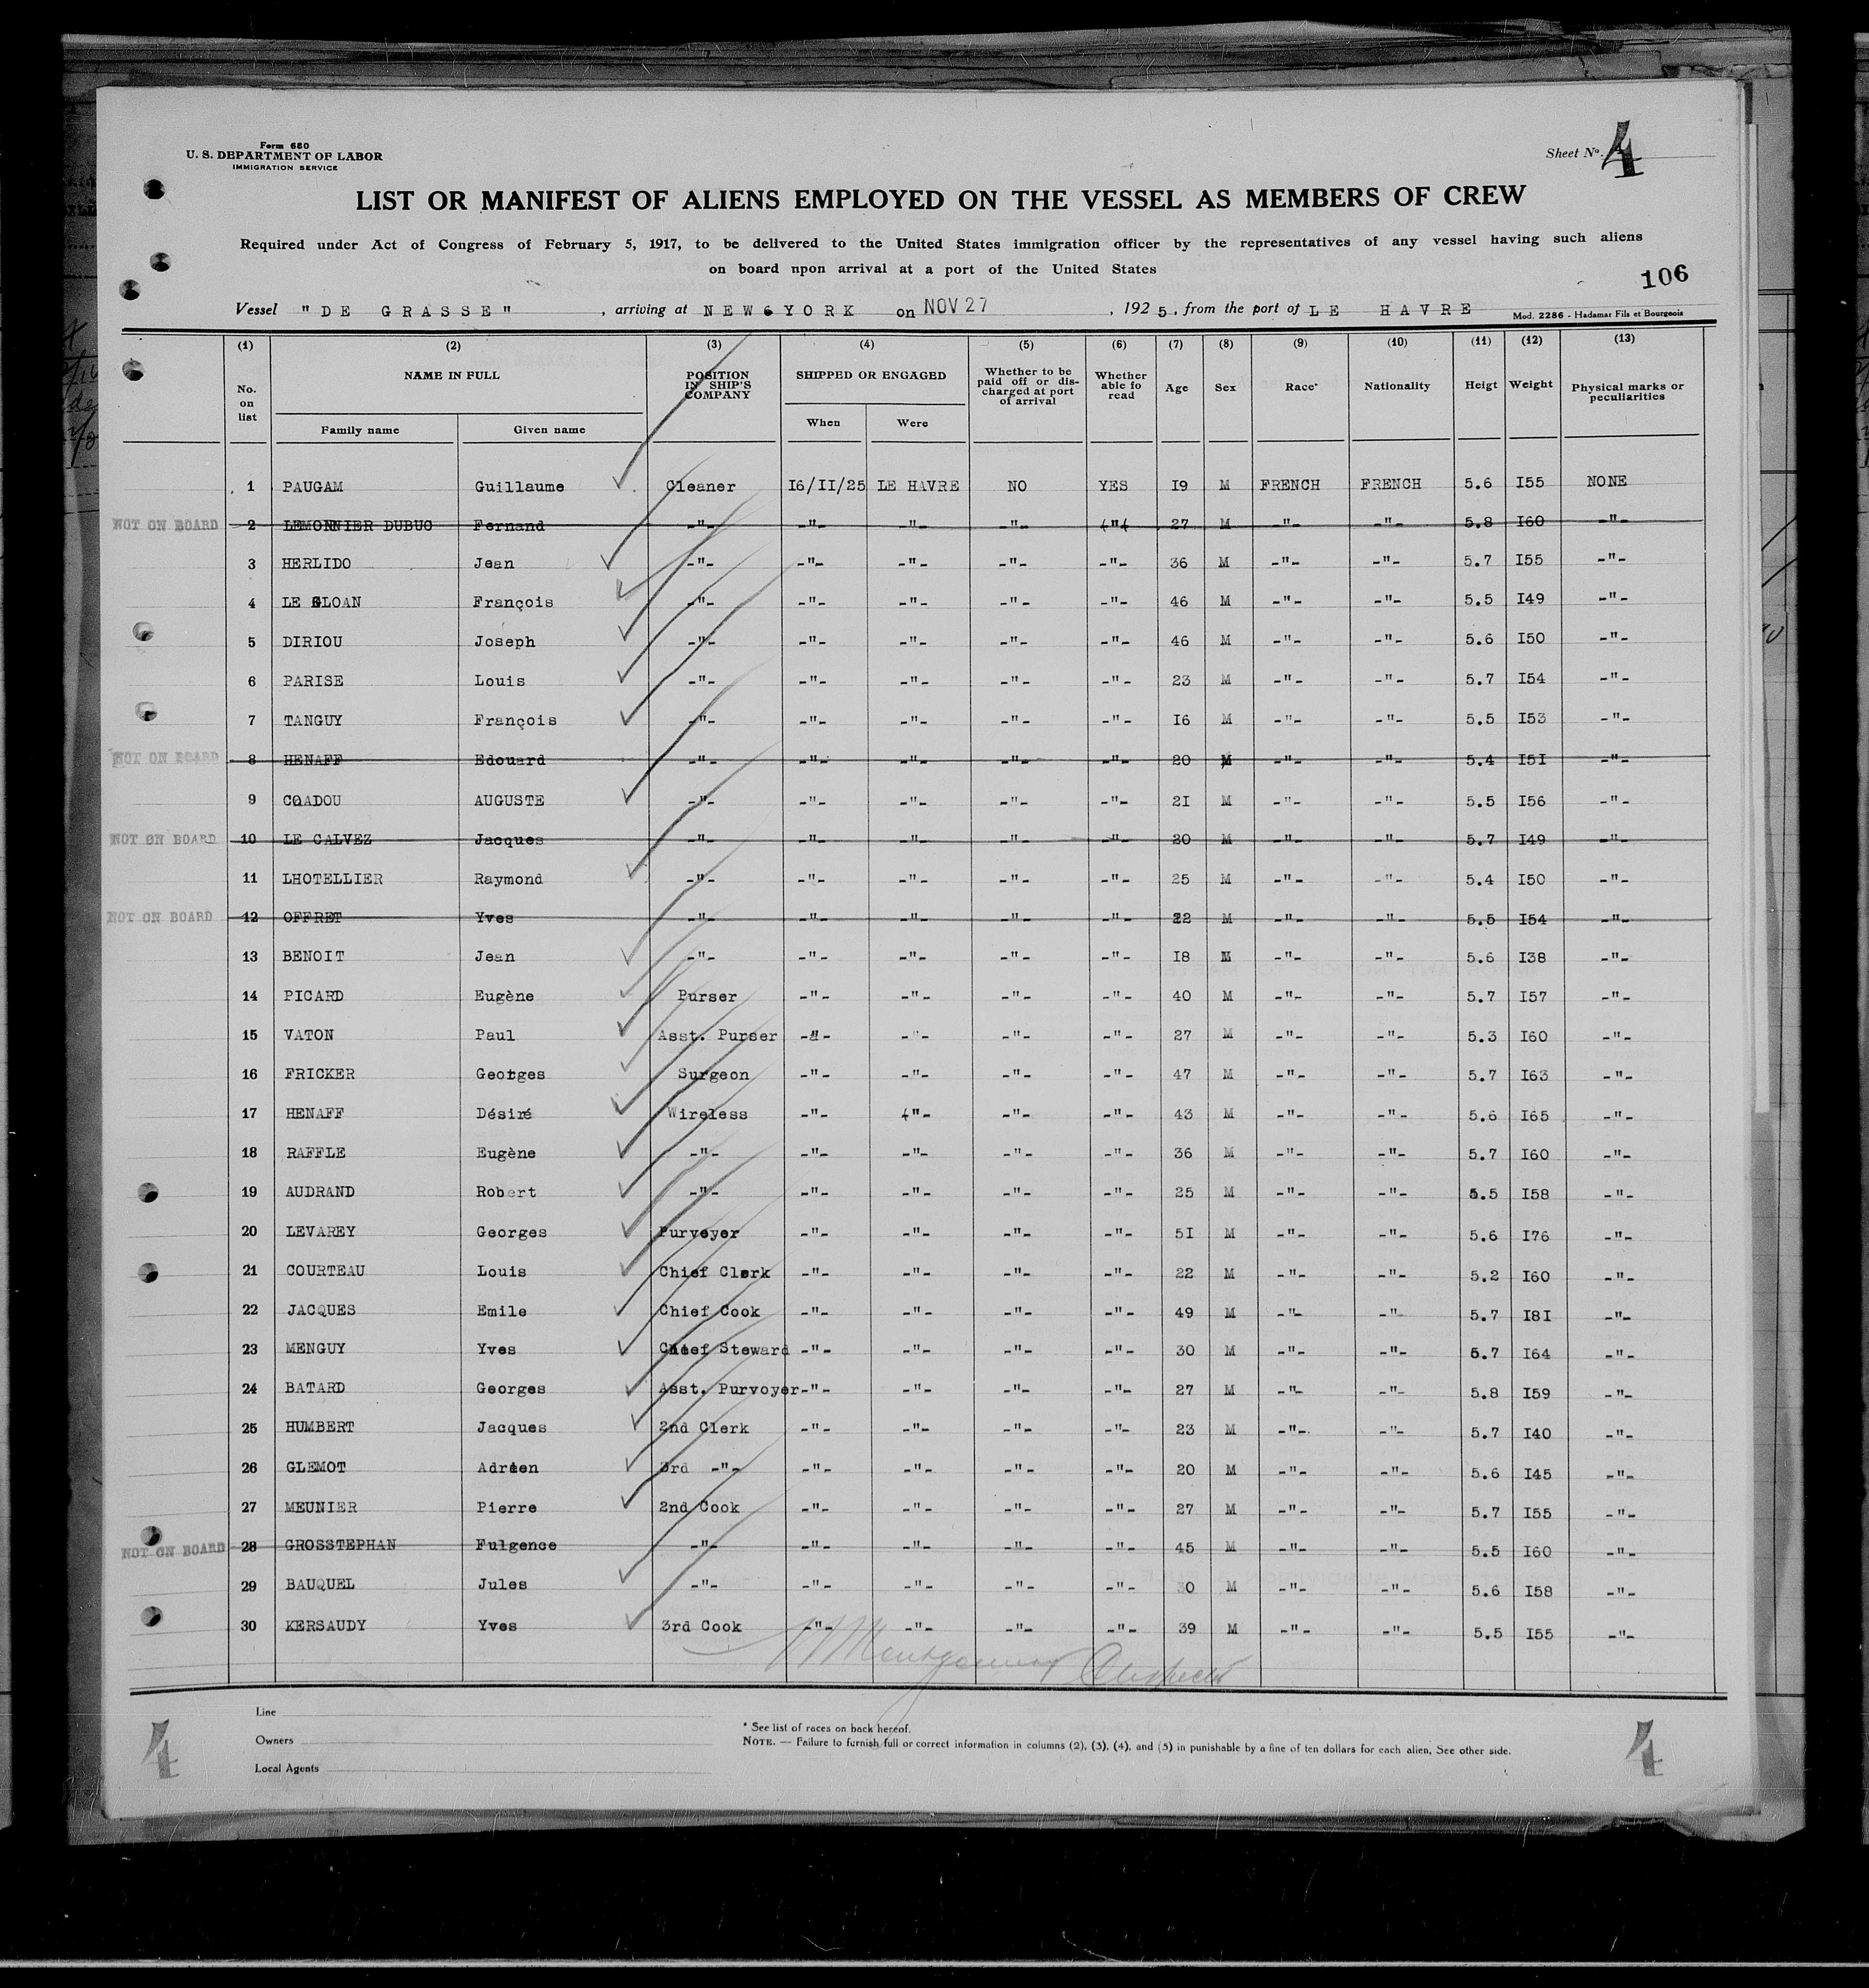 Form 680
U. S. DEPARTMENT OF LABOR
IMMIGRATION SERVICE
Sheet No. 4
LIST OR MANIFEST OF ALIENS EMPLOYED ON THE VESSEL AS MEMBERS OF CREW
Required under Act of Congress of February 5, 1917, to be delivered to the United States immigration officer by the representatives of any vessel having such aliens
on board upon arrival at a port of the United States
106
Vessel "DE GRASSE", arriving at NEW YORK on NOV 27, 1925, from the port of LE HAVRE
Mod. 2286 - Hadamar Fils et Bourgeois
(1) (2) (3) (4) (5) (6) (7) (8) (9) (10) (11) (12) (13)
No. on list NAME IN FULL POSITION IN SHIP'S COMPANY SHIPPED OR ENGAGED Whether to be paid off or discharged at port of arrival Whether able fo read Age Sex Race* Nationality Heigt Weight Physical marks or peculiarities
Family name Given name When Were
1 PAUGAM Guillaume Cleaner I6/II/25 LE HAVRE NO YES I9 M FRENCH FRENCH 5.6 I55 NONE
NOT ON BOARD 2 LEMONNIER DUBUC Fernand -"- -"- -"- -"- ("( 27 M -"- -"- 5.8 I60 -"-
3 HERLIDO Jean -"- -"- -"- -"- -"- 36 M -"- -"- 5.7 I55 -"-
4 LE GLOAN François -"- -"- -"- -"- -"- 46 M -"- -"- 5.5 I49 -"-
5 DIRIOU Joseph -"- -"- -"- -"- -"- 46 M -"- -"- 5.6 I50 -"-
6 PARISE Louis -"- -"- -"- -"- -"- 23 M -"- -"- 5.7 I54 -"-
7 TANGUY François -"- -"- -"- -"- -"- I6 M -"- -"- 5.5 I53 -"-
NOT ON BOARD 8 HENAFF Edouard -"- -"- -"- -"- -"- 20 M -"- -"- 5.4 I5I -"-
9 COADOU AUGUSTE -"- -"- -"- -"- -"- 2I M -"- -"- 5.5 I56 -"-
NOT ON BOARD 10 LE CALVEZ Jacques -"- -"- -"- -"- -"- 20 M -"- -"- 5.7 I49 -"-
11 LHOTELLIER Raymond -"- -"- -"- -"- -"- 25 M -"- -"- 5.4 I50 -"-
NOT ON BOARD 12 OFFRET Yves -"- -"- -"- -"- -"- 22 M -"- -"- 5.5 I54 -"-
13 BENOIT Jean -"- -"- -"- -"- -"- I8 M -"- -"- 5.6 I38 -"-
14 PICARD Eugène Purser -"- -"- -"- -"- 40 M -"- -"- 5.7 I57 -"-
15 VATON Paul Asst. Purser -"- -"- -"- -"- 27 M -"- -"- 5.3 I60 -"-
16 FRICKER Georges Surgeon -"- -"- -"- -"- 47 M -"- -"- 5.7 I63 -"-
17 HENAFF Désiré Wireless -"- ("- -"- -"- 43 M -"- -"- 5.6 I65 -"-
18 RAFFLE Eugène -"- -"- -"- -"- -"- 36 M -"- -"- 5.7 I60 -"-
19 AUDRAND Robert -"- -"- -"- -"- -"- 25 M -"- -"- 5.5 I58 -"-
20 LEVAREY Georges Purveyer -"- -"- -"- -"- 5I M -"- -"- 5.6 I76 -"-
21 COURTEAU Louis Chief Clerk -"- -"- -"- -"- 22 M -"- -"- 5.2 I60 -"-
22 JACQUES Emile Chief Cook -"- -"- -"- -"- 49 M -"- -"- 5.7 I8I -"-
23 MENGUY Yves Chief Steward -"- -"- -"- -"- 30 M -"- -"- 5.7 I64 -"-
24 BATARD Georges Asst. Purvoyer -"- -"- -"- -"- 27 M -"- -"- 5.8 I59 -"-
25 HUMBERT Jacques 2nd Clerk -"- -"- -"- -"- 23 M -"- -"- 5.7 I40 -"-
26 GLEMOT Adrien 3rd -"- -"- -"- -"- -"- 20 M -"- -"- 5.6 I45 -"-
27 MEUNIER Pierre 2nd Cook -"- -"- -"- -"- 27 M -"- -"- 5.7 I55 -"-
NOT ON BOARD 28 GROSSTEPHAN Fulgence -"- -"- -"- -"- -"- 45 M -"- -"- 5.5 I60 -"-
29 BAUQUEL Jules -"- -"- -"- -"- -"- 30 M -"- -"- 5.6 I58 -"-
30 KERSAUDY Yves 3rd Cook -"- -"- -"- -"- 39 M -"- -"- 5.5 I55 -"-
Line
Owners
Local Agents
* See list of races on back hereof.
NOTE. — Failure to furnish full or correct information in columns (2), (3), (4), and (5) in punishable by a fine of ten dollars for each alien, See other side.
4
4